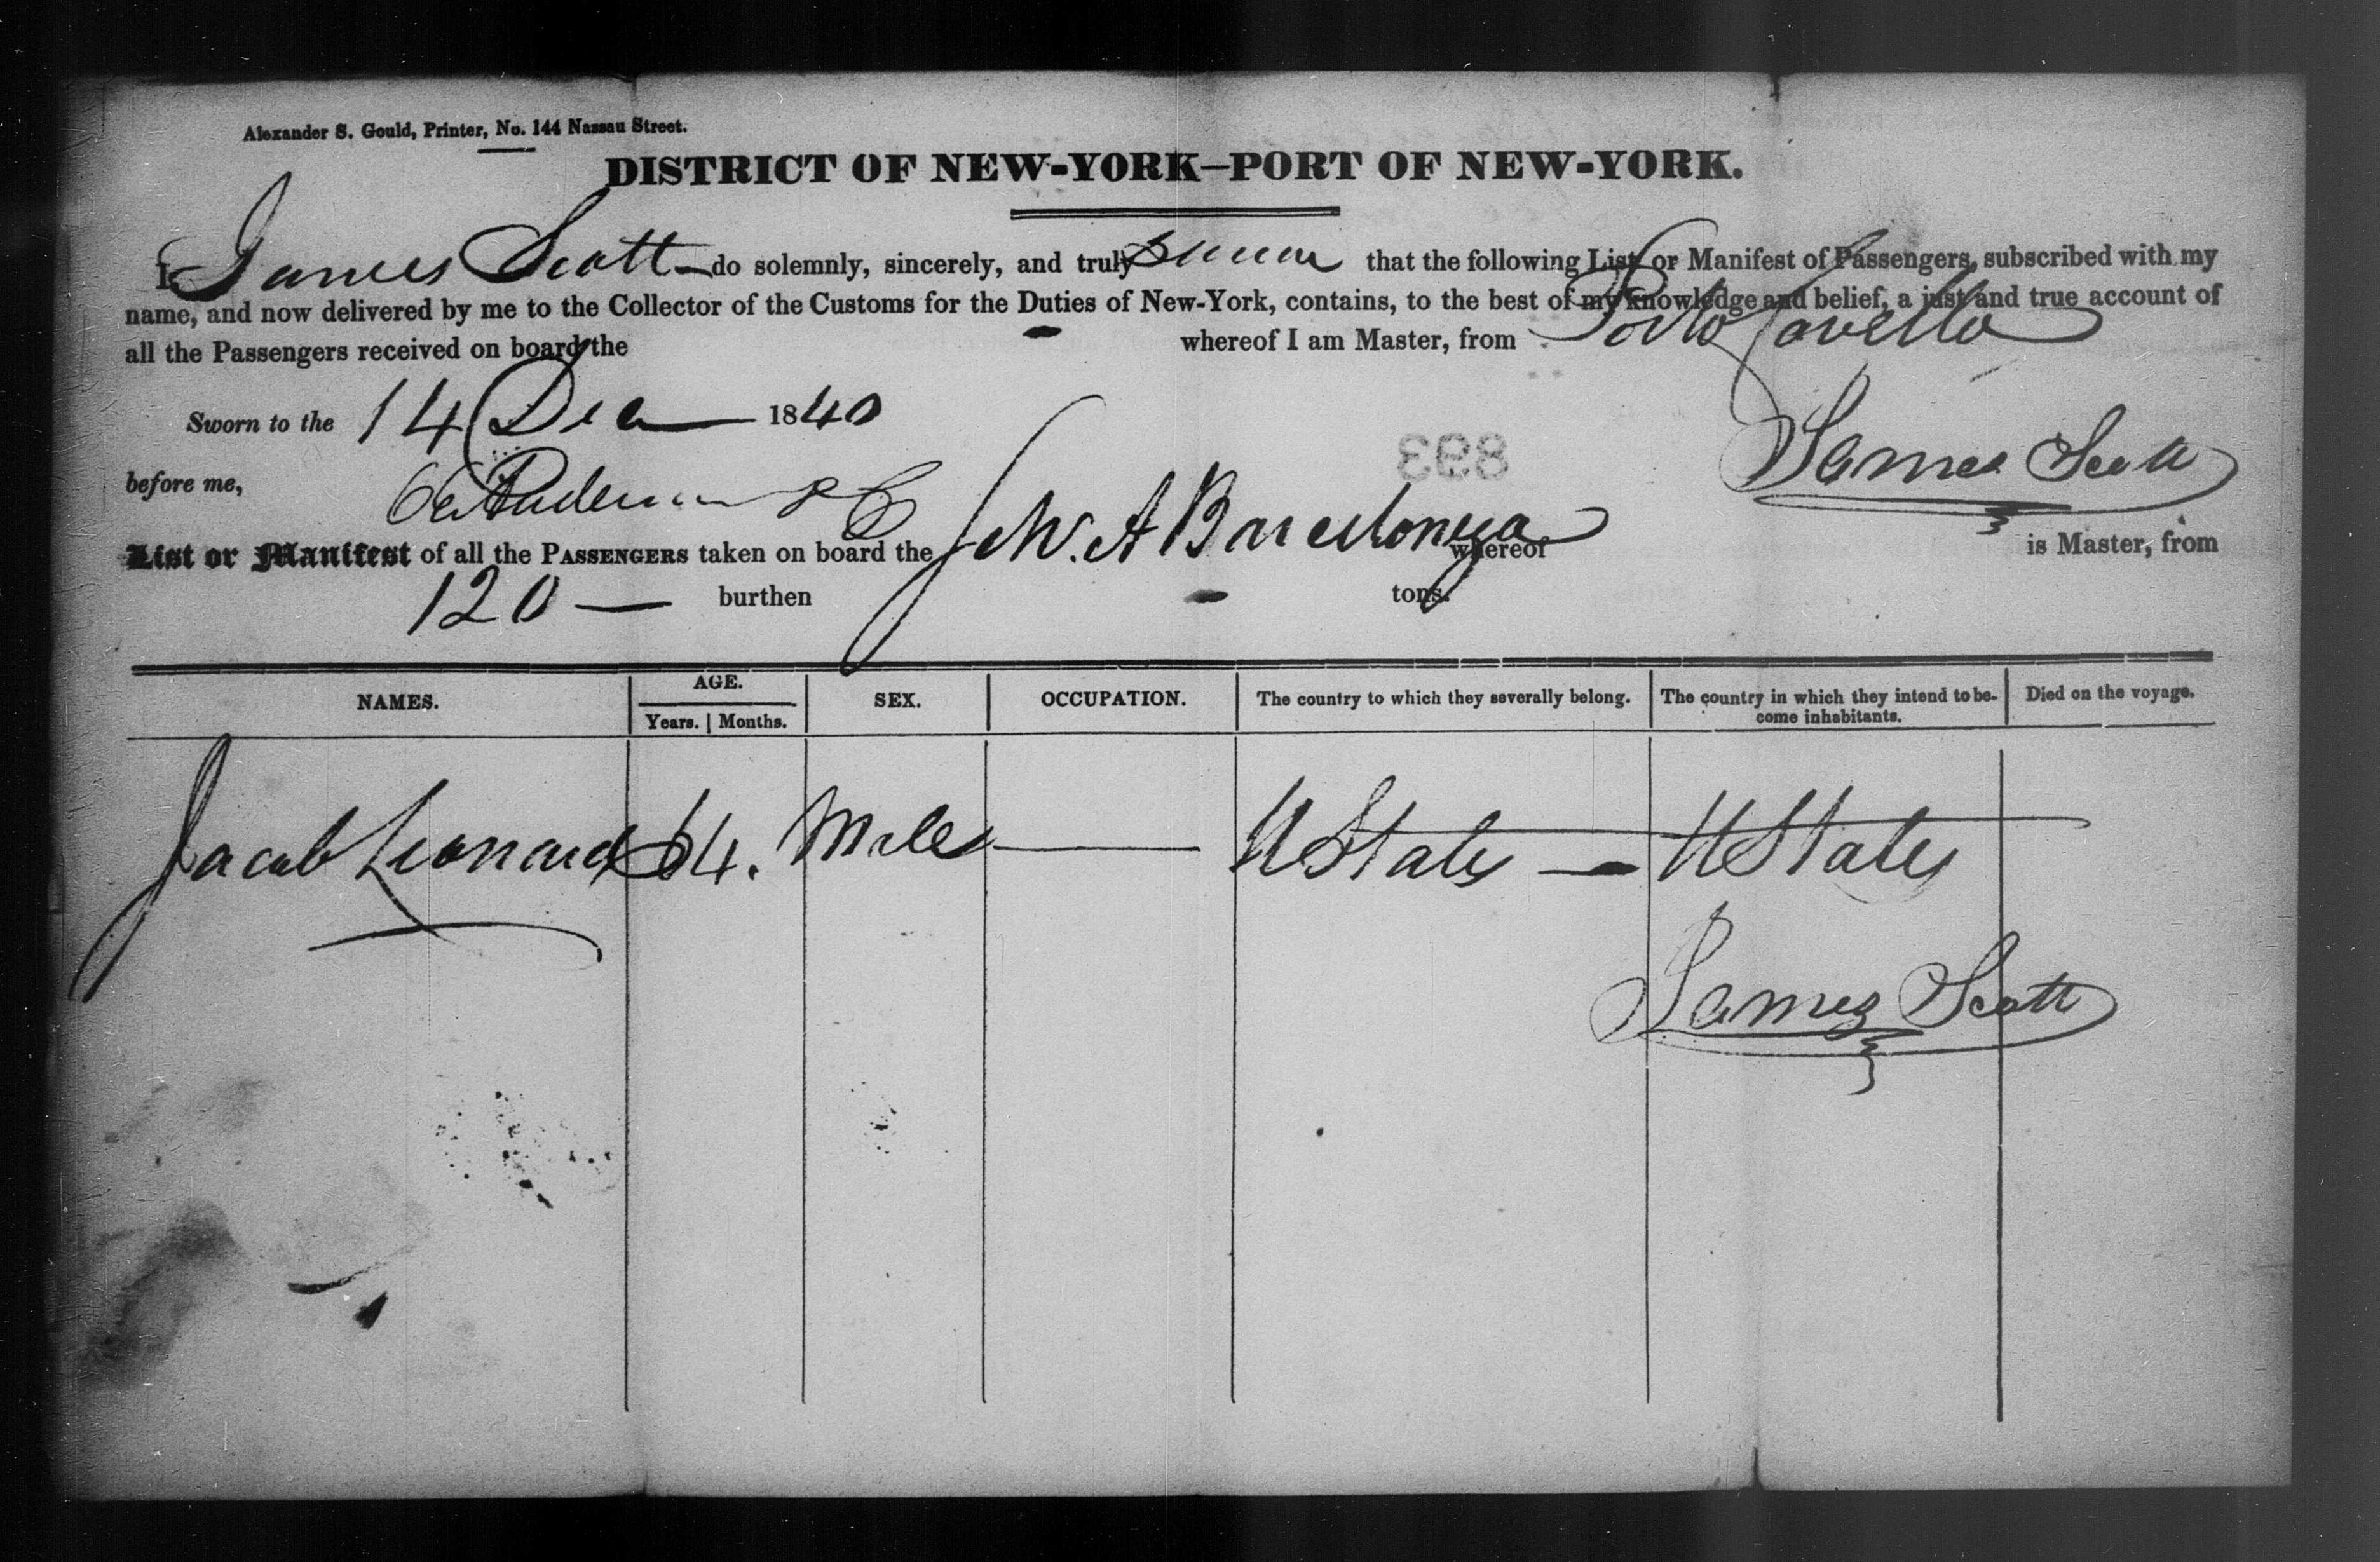 Alexander S. Gould, Printer, No. 144 Nassau Street.
DISTRICT OF NEW-YORK–PORT OF NEW-YORK.
I, James Scott do solemnly, sincerely, and truly swear that the following List or Manifest of Passengers, subscribed with my
name, and now delivered by me to the Collector of the Customs for the Duties of New-York, contains, to the best of my knowledge and belief, a just and true account of
all the Passengers received on board the whereof I am Master, from Porto Cavello
Sworn to the 14 Dec 1840
James Scott
before me,
893
List or Manifest of all the PASSENGERS taken on board the W. A whereof is Master, from
120 — burthen tons.
NAMES. AGE. SEX. OCCUPATION. The country to which they severally belong. The country in which they intend to be- Died on the voyage.
Years. Months. come inhabitants.
Jacob Leonard 64. Male — U States — U States
James Scott